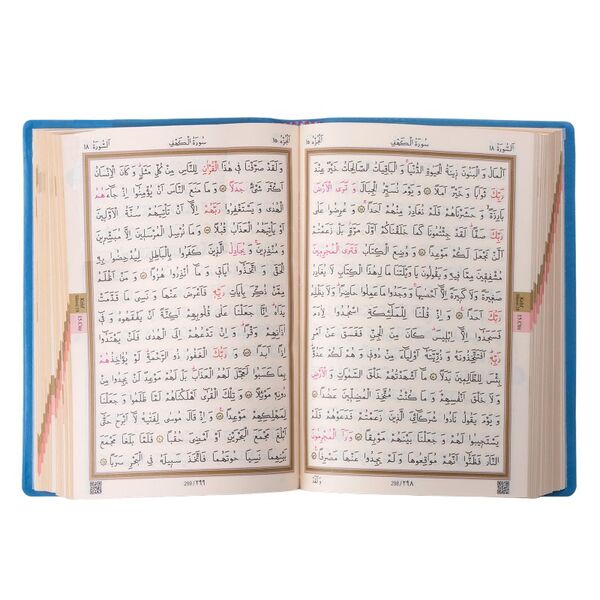 اَلسُّورَةُ ١٨ سُورَةُ الْكَهْفِ اَلْجُزْءُ ١٥
اَلْمَالُ وَالْبَنُونَ زِينَةُ الْحَيٰوةِ الدُّنْيَا وَالْبَاقِيَاتُ الصَّالِحَاتُ خَيْرٌ عِنْدَ
رَبِّكَ ثَوَابًا وَخَيْرٌ اَمَلًا ۝ وَيَوْمَ نُسَيِّرُ الْجِبَالَ وَتَرَى الْاَرْضَ
بَارِزَةً وَحَشَرْنَاهُمْ فَلَمْ نُغَادِرْ مِنْهُمْ اَحَدًا ۝ وَعُرِضُوا عَلٰى
رَبِّكَ صَفًّا لَقَدْ جِئْتُمُونَا كَمَا خَلَقْنَاكُمْ اَوَّلَ مَرَّةٍ بَلْ زَعَمْتُمْ
اَلَّنْ نَجْعَلَ لَكُمْ مَوْعِدًا ۝ وَوُضِعَ الْكِتَابُ فَتَرَى الْمُجْرِمِينَ
مُشْفِقِينَ مِمَّا فِيهِ وَيَقُولُونَ يَا وَيْلَتَنَا مَالِ هٰذَا الْكِتَابِ لَا يُغَادِرُ
صَغِيرَةً وَلَا كَبِيرَةً اِلَّا اَحْصٰيهَا وَوَجَدُوا مَا عَمِلُوا حَاضِرًا وَلَا يَظْلِمُ
رَبُّكَ اَحَدًا ۝ وَاِذْ قُلْنَا لِلْمَلٰئِكَةِ اسْجُدُوا لِاٰدَمَ
فَسَجَدُوا اِلَّا اِبْلِيسَ كَانَ مِنَ الْجِنِّ فَفَسَقَ عَنْ اَمْرِ
رَبِّهِ اَفَتَتَّخِذُونَهُ وَذُرِّيَّتَهُ اَوْلِيَاءَ مِنْ دُونِي وَهُمْ لَكُمْ عَدُوٌّ
بِئْسَ لِلظَّالِمِينَ بَدَلًا ۝ مَا اَشْهَدْتُهُمْ خَلْقَ السَّمٰوَاتِ وَالْاَرْضِ
وَلَا خَلْقَ اَنْفُسِهِمْ وَمَا كُنْتُ مُتَّخِذَ الْمُضِلِّينَ عَضُدًا ۝
وَيَوْمَ يَقُولُ نَادُوا شُرَكَائِيَ الَّذِينَ زَعَمْتُمْ فَدَعَوْهُمْ فَلَمْ
يَسْتَجِيبُوا لَهُمْ وَجَعَلْنَا بَيْنَهُمْ مَوْبِقًا ۝ وَرَاَ الْمُجْرِمُونَ
النَّارَ فَظَنُّوا اَنَّهُمْ مُوَاقِعُوهَا وَلَمْ يَجِدُوا عَنْهَا مَصْرِفًا ۝
وَلَقَدْ
298/٢٩٨
اَلْجُزْءُ ١٥ سُورَةُ الْكَهْفِ اَلسُّورَةُ ١٨
وَلَقَدْ صَرَّفْنَا فِي هٰذَا الْقُرْاٰنِ لِلنَّاسِ مِنْ كُلِّ مَثَلٍ وَكَانَ الْاِنْسَانُ
اَكْثَرَ شَيْءٍ جَدَلًا ۝ وَمَا مَنَعَ النَّاسَ اَنْ يُؤْمِنُوا اِذْ جَاءَهُمُ
الْهُدٰى وَيَسْتَغْفِرُوا رَبَّهُمْ اِلَّا اَنْ تَأْتِيَهُمْ سُنَّةُ الْاَوَّلِينَ
اَوْ يَأْتِيَهُمُ الْعَذَابُ قُبُلًا ۝ وَمَا نُرْسِلُ الْمُرْسَلِينَ اِلَّا مُبَشِّرِينَ
وَمُنْذِرِينَ وَيُجَادِلُ الَّذِينَ كَفَرُوا بِالْبَاطِلِ لِيُدْحِضُوا بِهِ
الْحَقَّ وَاتَّخَذُوا اٰيَاتِي وَمَا اُنْذِرُوا هُزُوًا ۝ وَمَنْ اَظْلَمُ
مِمَّنْ ذُكِّرَ بِاٰيَاتِ رَبِّهِ فَاَعْرَضَ عَنْهَا وَنَسِيَ مَا قَدَّمَتْ
يَدَاهُ اِنَّا جَعَلْنَا عَلٰى قُلُوبِهِمْ اَكِنَّةً اَنْ يَفْقَهُوهُ وَفِي
اٰذَانِهِمْ وَقْرًا وَاِنْ تَدْعُهُمْ اِلَى الْهُدٰى فَلَنْ يَهْتَدُوا
اِذًا اَبَدًا ۝ وَرَبُّكَ الْغَفُورُ ذُو الرَّحْمَةِ لَوْ يُؤَاخِذُهُمْ
بِمَا كَسَبُوا لَعَجَّلَ لَهُمُ الْعَذَابَ بَلْ لَهُمْ مَوْعِدٌ لَنْ يَجِدُوا مِنْ
دُونِهِ مَوْئِلًا ۝ وَتِلْكَ الْقُرٰى اَهْلَكْنَاهُمْ لَمَّا ظَلَمُوا وَجَعَلْنَا
لِمَهْلِكِهِمْ مَوْعِدًا ۝ وَاِذْ قَالَ مُوسٰى لِفَتٰيهُ لَا اَبْرَحُ حَتّٰى
اَبْلُغَ مَجْمَعَ الْبَحْرَيْنِ اَوْ اَمْضِيَ حُقُبًا ۝ فَلَمَّا بَلَغَا مَجْمَعَ
بَيْنِهِمَا نَسِيَا حُوتَهُمَا فَاتَّخَذَ سَبِيلَهُ فِي الْبَحْرِ سَرَبًا ۝
299/٢٩٩
Kehf
15.Cüz
Kehf
15.Cüz